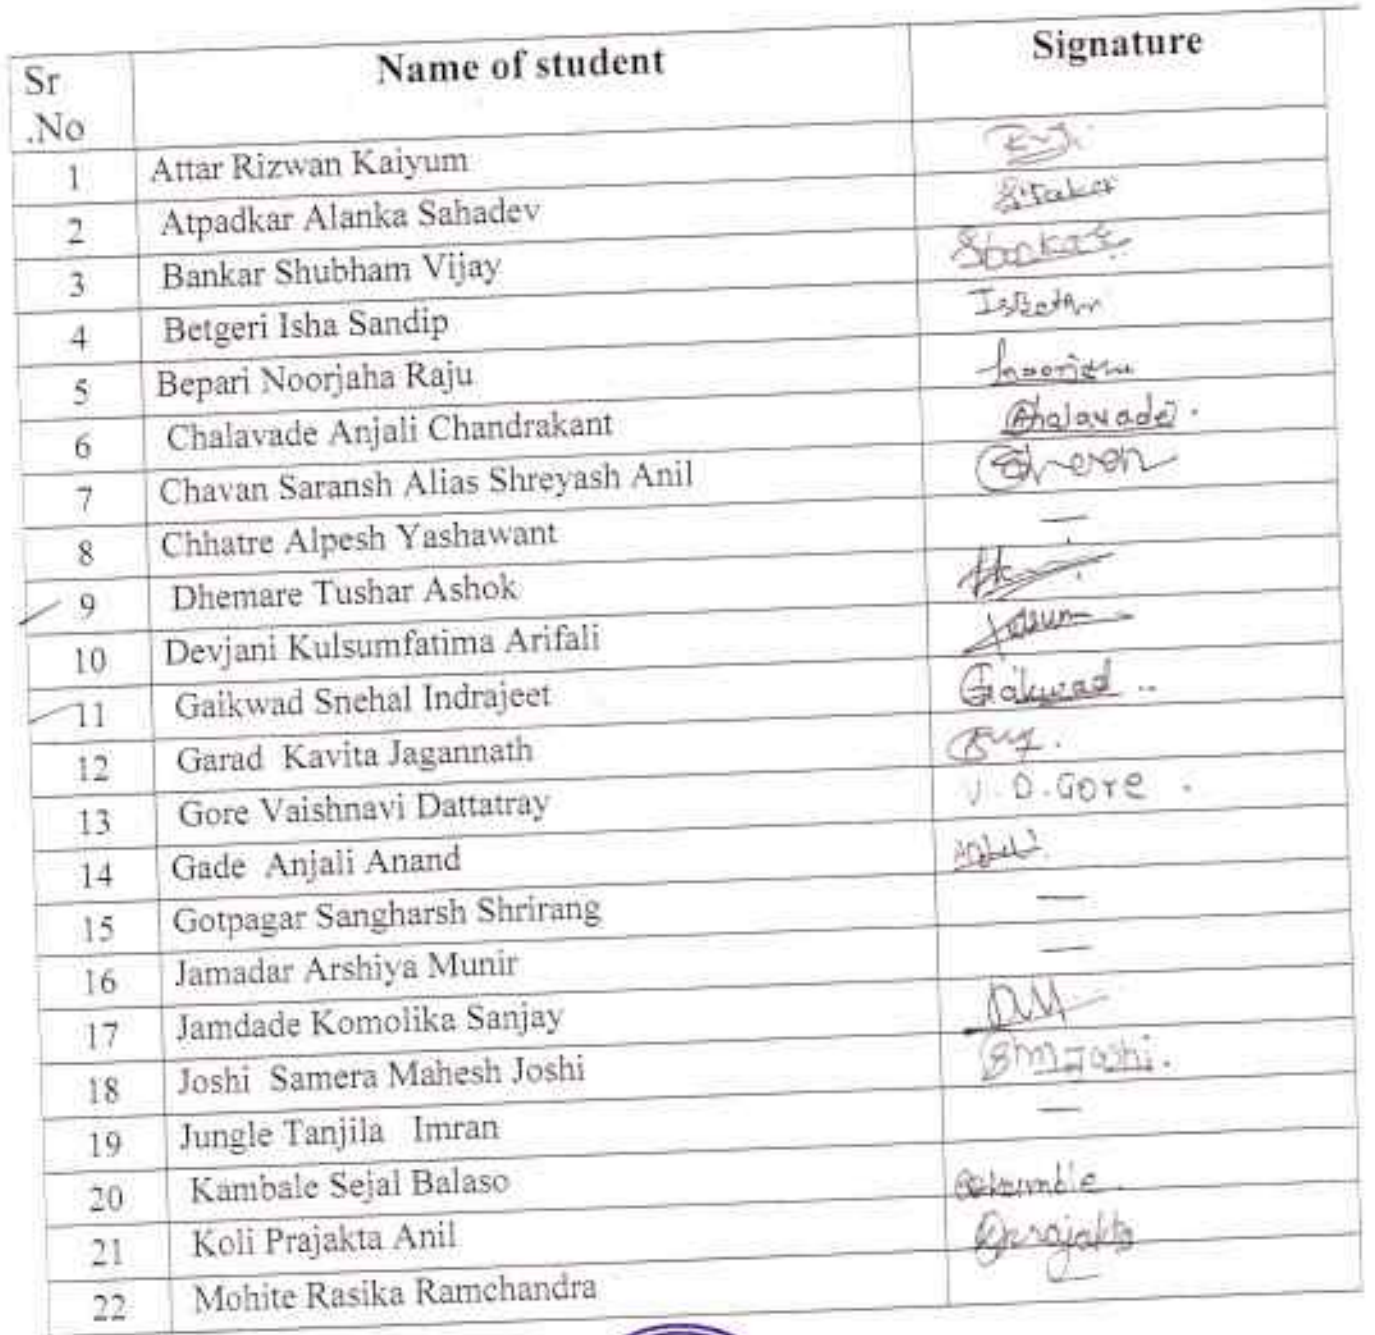 Sr .No Name of student Signature
1 Attar Rizwan Kaiyum
2 Atpadkar Alanka Sahadev
3 Bankar Shubham Vijay
4 Betgeri Isha Sandip
5 Bepari Noorjaha Raju
6 Chalavade Anjali Chandrakant Chalavade.
7 Chavan Saransh Alias Shreyash Anil
8 Chhatre Alpesh Yashawant —
9 Dhemare Tushar Ashok
10 Devjani Kulsumfatima Arifali
11 Gaikwad Snehal Indrajeet Gaikwad ..
12 Garad Kavita Jagannath
13 Gore Vaishnavi Dattatray V.D.Gore .
14 Gade Anjali Anand
15 Gotpagar Sangharsh Shrirang —
16 Jamadar Arshiya Munir —
17 Jamdade Komolika Sanjay
18 Joshi Samera Mahesh Joshi SMJoshi.
19 Jungle Tanjila Imran —
20 Kambale Sejal Balaso
21 Koli Prajakta Anil Prajakta
22 Mohite Rasika Ramchandra —